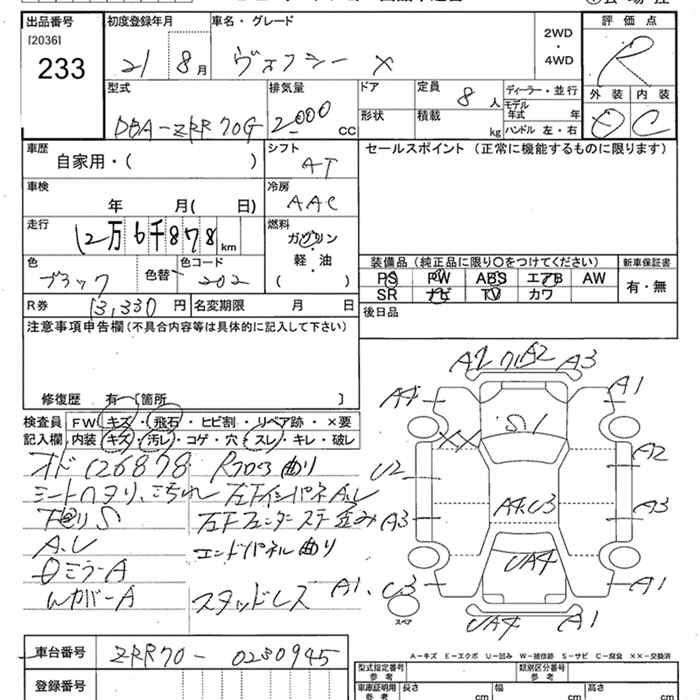 出品番号
[2036]
233
初度登録年月
21 8 月
車名・グレード
ヴォクシー X
2WD
・
4WD
評価点
R
外装 内装
D C
型式
DBA-ZRR70G
排気量
2000 CC
ドア
形状
定員
8 人
積載
kg
ディーラー・並行
モデル年式 年
ハンドル 左・右
車歴
自家用・( )
シフト
AT
セールスポイント (正常に機能するものに限ります)
車検
年 月( 日)
冷房
AAC
走行
12万6千878 km
燃料
ガソリン
・
軽・油
( )
装備品 (純正品に限り〇をつけてください)
新車保証書
PS PW ABS エアB AW
有・無
SR ナビ TV カワ
色
ブラック
色替
色コード
202
後日品
R券
13,330 円
名変期限 月 日
注意事項申告欄(不具合内容等は具体的に記入して下さい)
修復歴 有-[箇所 ]
検査員記入欄
FW キズ・飛石・ヒビ割・リペア跡・×要
内装 キズ・汚レ・コゲ・穴・スレ・キレ・破レ
オド126878 Rフロア曲り
シートヘタリ、汚れ 左FインパネA.U
下廻りS
A.U エンドパネル曲り
DミラーA
スタッドレス
A2 A2 A3
A4 A1
XX S1
U2 A2
A4.U3
A3 A3
UA4
A1.U3 A1
スペア
UA4 A1
A-キズ E-エクボ U-凹み W-補修跡 S-サビ C-腐食 XX-交換済
車台番号
ZRR70-0230945
登録番号
型式指定番号
参考
類別区分番号
参考
車庫証明用
参考
長さ cm
幅 cm
高さ cm